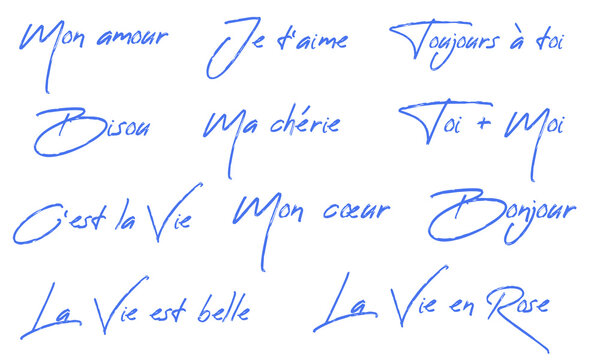 Mon amour Je t'aime Toujours à toi
Bisou Ma chérie Toi + Moi
C'est la Vie Mon cœur Bonjour
La Vie est belle La Vie en Rose